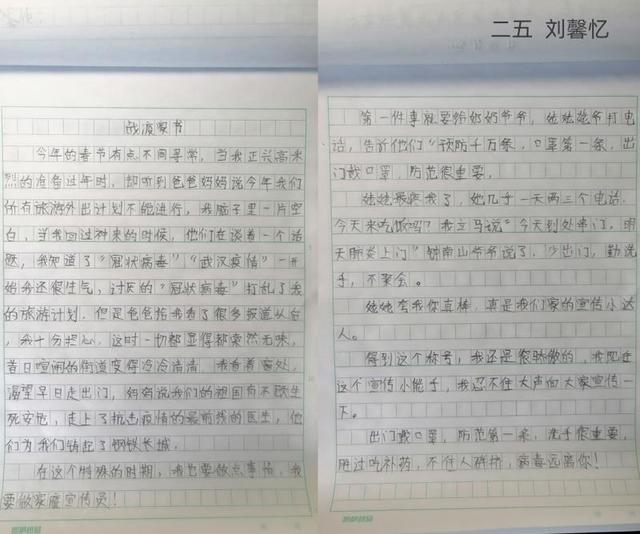 战疫家书
今年的春节有点不同寻常，当我正兴高采
烈的准备过年时，却听到爸爸妈妈说今年我们
所有旅游外出计划不能进行，我脑子里一片空
白，当我回过神来的时候，他们在谈着一个话
题，我知道了“冠状病毒”“武汉疫情”一开
始我还很生气，讨厌的“冠状病毒”打乱了我
的旅游计划。但是爸爸给我看了很多报道以后
，我十分担心，这时一切都显得都索然无味，
昔日喧闹的街道变得冷冷清清，我看着窗外，
渴望早日走出门，妈妈说我们的祖国有不顾生
死安危，走上了抗击疫情的最前线的医生，他
们为我们铸起了钢铁长城。
在这个特殊的时期，我也要做点事情，我
要做家庭宣传员！
二五 刘馨忆
第一件事就要给奶奶爷爷，姥姥姥爷打电
话，告诉他们“预防千万条，口罩第一条，出
门戴口罩，防范很重要。
姥姥最疼我了，她几乎一天两三个电话，
今天来吃饭吗？我立马说“今天到处串门，明
天肺炎上门”钟南山爷爷说了，少出门，勤洗
手，不聚会。
姥姥夸我你真棒，真是我们家的宣传小达
人。
得到这个称号，我还是很骄傲的，我
这个宣传小能手，我忍不住大声向大家宣传一
下。
出门戴口罩，防范第一条，洗手很重要，
胜过吃补药，不住人群挤，病毒远离你！